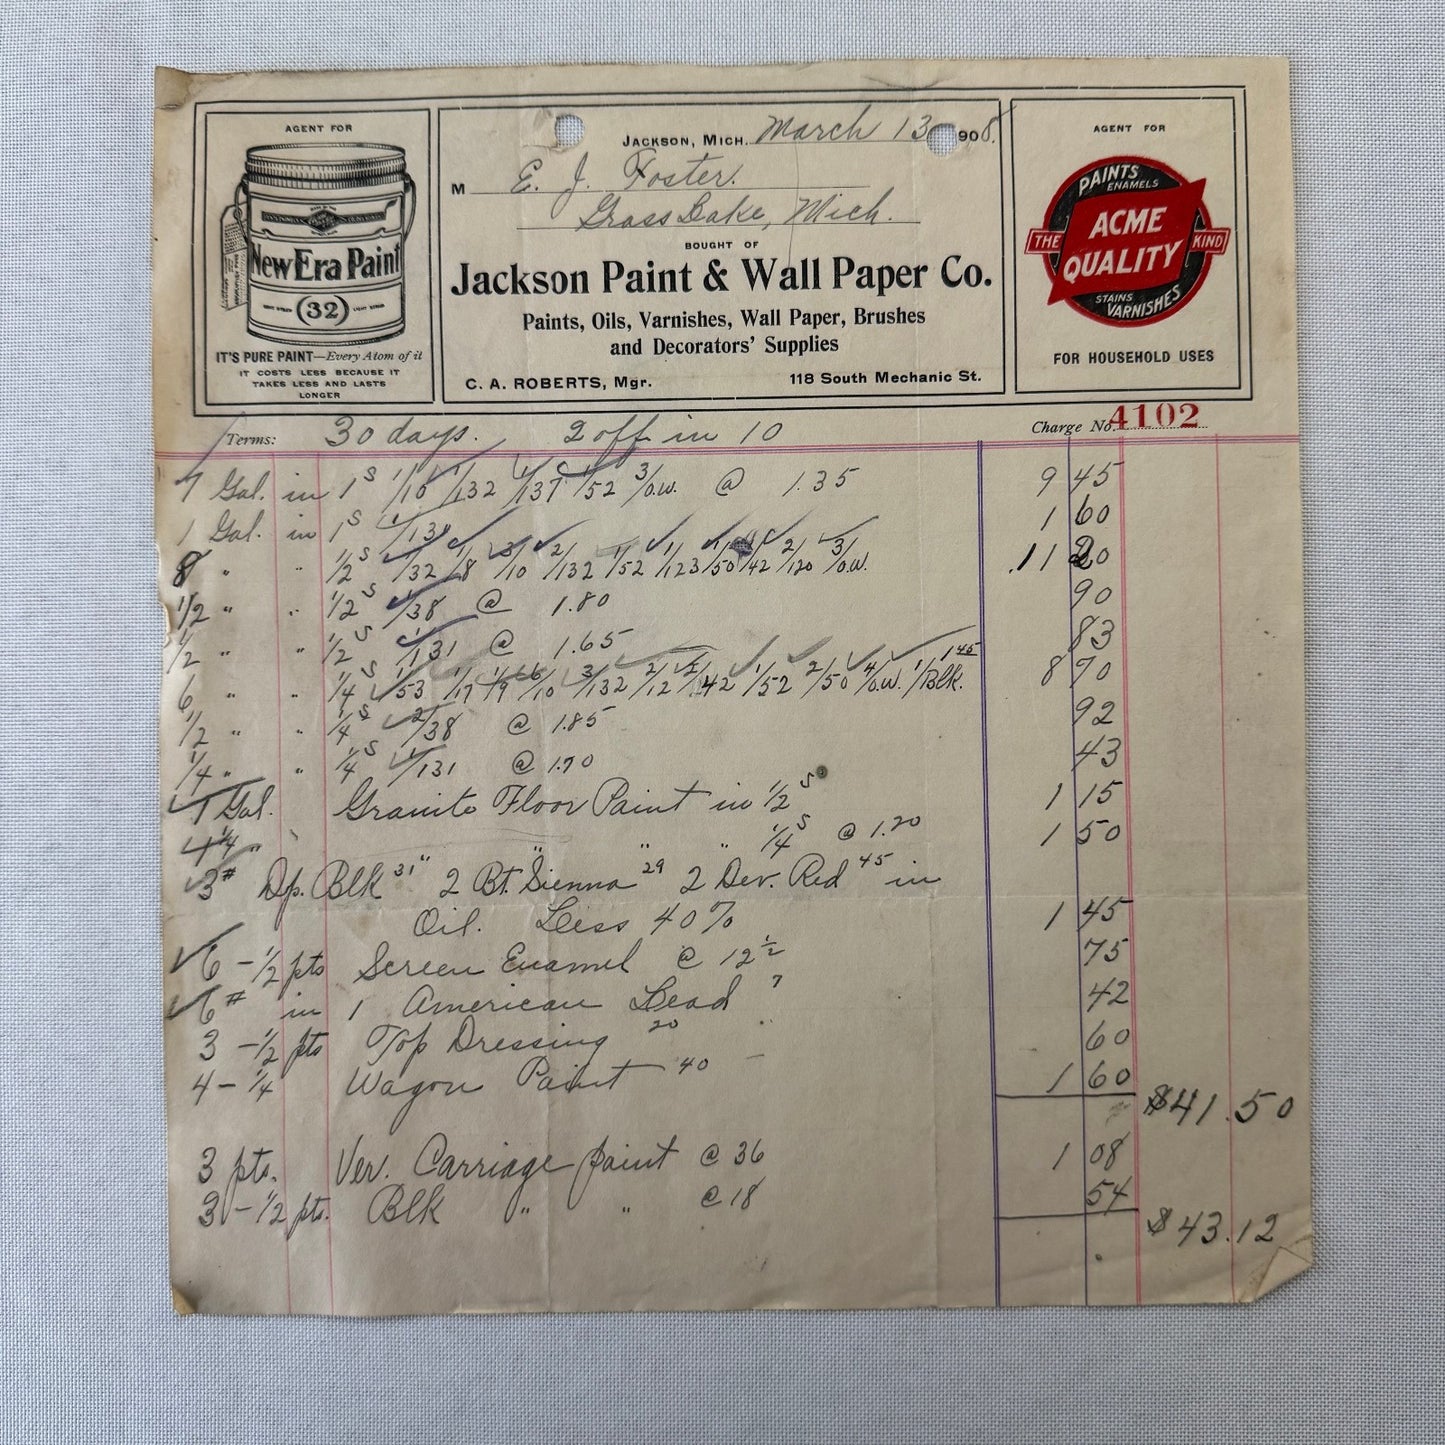 AGENT FOR
New Era Paint
32
IT'S PURE PAINT—Every Atom of it
IT COSTS LESS BECAUSE IT
TAKES LESS AND LASTS
LONGER
JACKSON, MICH. March 13 1908.
M E. J. Foster.
Grass Lake, Mich.
BOUGHT OF
Jackson Paint & Wall Paper Co.
Paints, Oils, Varnishes, Wall Paper, Brushes
and Decorators' Supplies
C. A. ROBERTS, Mgr. 118 South Mechanic St.
AGENT FOR
PAINTS
ENAMELS
THE ACME QUALITY KIND
STAINS
VARNISHES
FOR HOUSEHOLD USES
Terms: 30 days. 2 off in 10 Charge No. 4102
7 Gal. in 1s 1/10 1/132 1/137 1/52 3/O.W. @ 1.35 9 45
1 Gal. in 1s 1/130 1 60
8 " " 1/2s 1/32 1/8 3/10 2/132 1/52 1/123 1/50 1/42 2/120 3/O.W. 11 20
1/2 " " 1/2s 1/38 @ 1.80 90
1/2 " " 1/2s 1/131 @ 1.65 83
6 " " 1/4s 1/53 1/17 1/9 6/10 3/132 2/12 2/142 1/52 2/50 4/O.W. 1/Blk. 1 45 8 70
1/2 " " 1/4s 2/38 @ 1.85 92
1/4 " " 1/4s 1/131 @ 1.70 43
1 Gal. Granite Floor Paint in 1/2s 1 15
1 1/4 " " " " 1/4s @ 1.20 1 50
3# Dp. Blk 31 " 2 Bt. Sienna 29 2 Dev. Red 45 in
Oil. Less 40% 1 45
6 - 1/2 pts Screen Enamel @ 12 1/2 75
6# in 1 American Lead 7 42
3 - 1/2 pts Top Dressing 20 60
4 - 1/4 Wagon Paint 40 1 60
$41.50
3 pts. Ver. Carriage paint @ 36 1 08
3 - 1/2 pts. Blk " " @ 18 54
$43.12